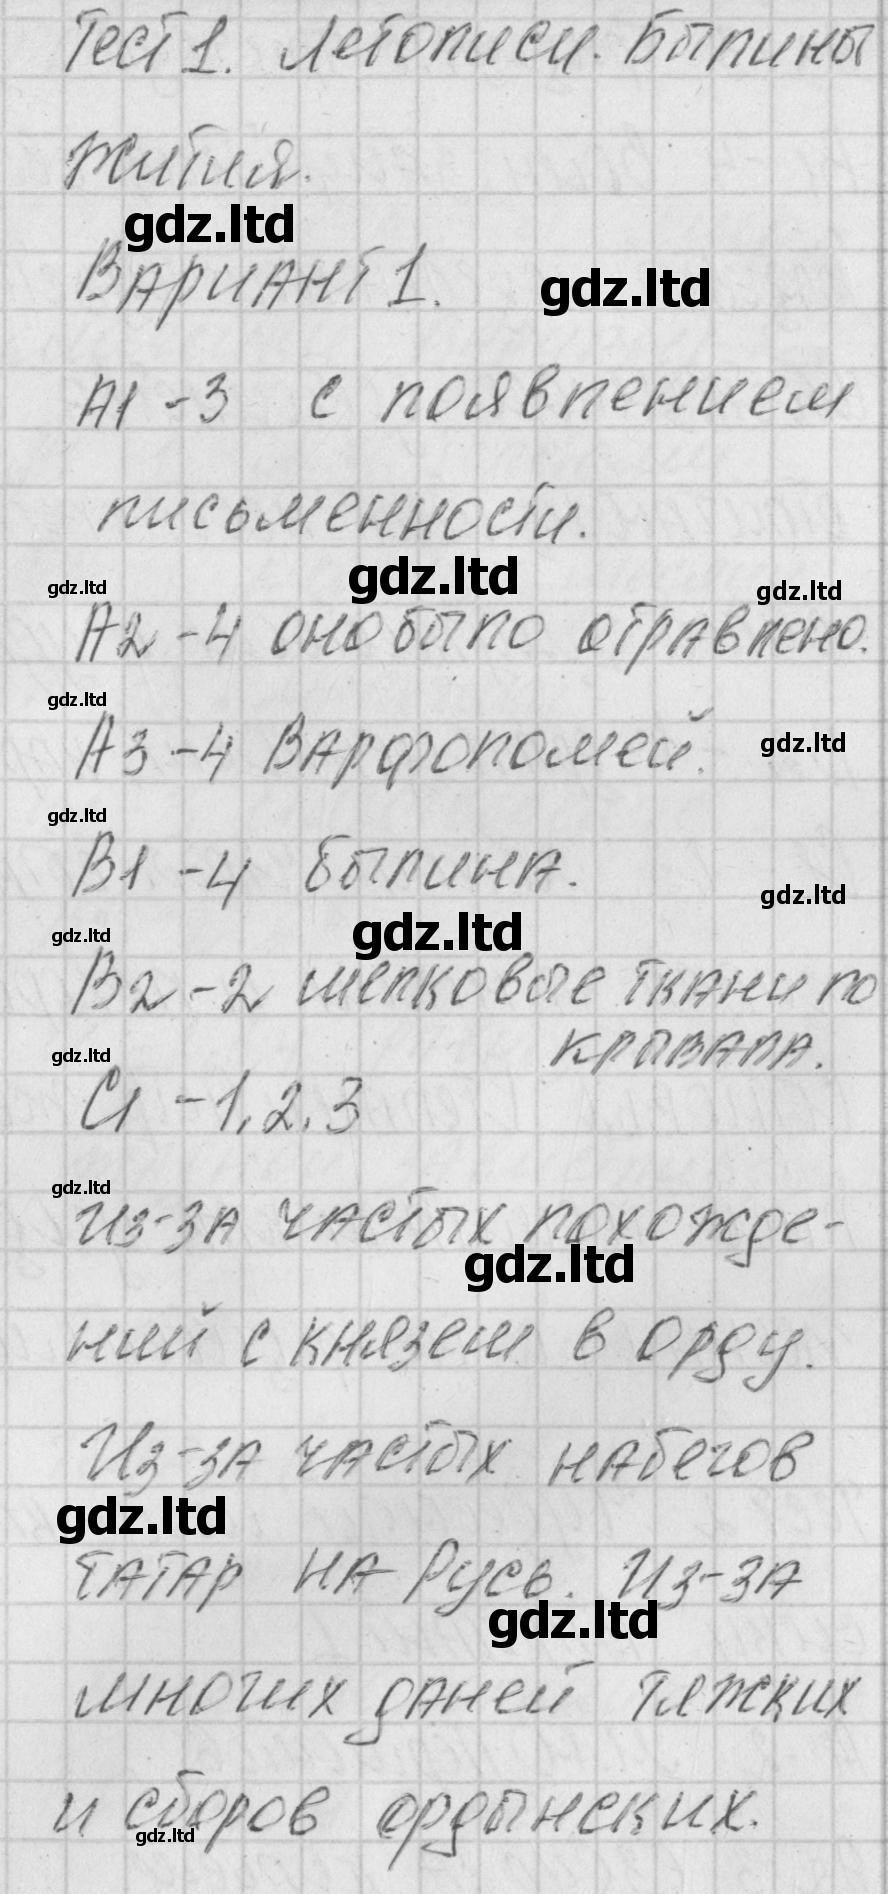 Тест 1. Летописи. Былины
жития.
gdz.ltd
Вариант 1.
gdz.ltd
А1 - 3 с появлением
письменности.
gdz.ltd
gdz.ltd
gdz.ltd
А2 - 4 оно было отравлено.
gdz.ltd
А3 - 4 Варфоломей.
gdz.ltd
gdz.ltd
В1 - 4 былина.
gdz.ltd
gdz.ltd
gdz.ltd
В2 - 2 шелковые ткани по
крывала.
gdz.ltd
С1 - 1, 2, 3
gdz.ltd
Из-за частых похожде-
gdz.ltd
ний с князем в орду.
Из-за частых набегов
gdz.ltd
татар на Русь. Из-за
gdz.ltd
многих даней тяжких
и сборов ордынских.
gdz.ltd